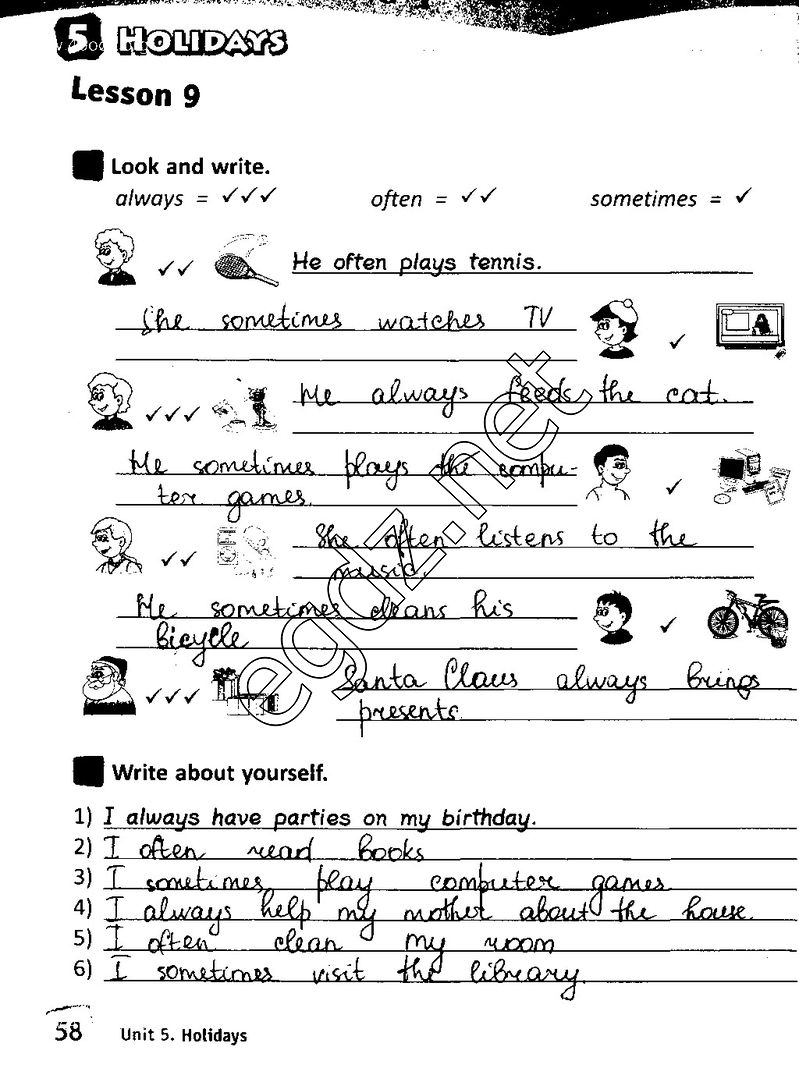 5 HOLIDAYS
Lesson 9
Look and write.
always = ✓✓✓ often = ✓✓ sometimes = ✓
✓✓ He often plays tennis.
She sometimes watches TV ✓
✓✓✓ He always feeds the cat.
He sometimes plays the compu-
ter games. ✓
✓✓ She often listens to the
music.
He sometimes cleans his
bicycle ✓
✓✓✓ Santa Claus always brings
presents.
egdz.net
Write about yourself.
1) I always have parties on my birthday.
2) I often read books
3) I sometimes play computer games.
4) I always help my mother about the house.
5) I often clean my room
6) I sometimes visit the library.
58 Unit 5. Holidays